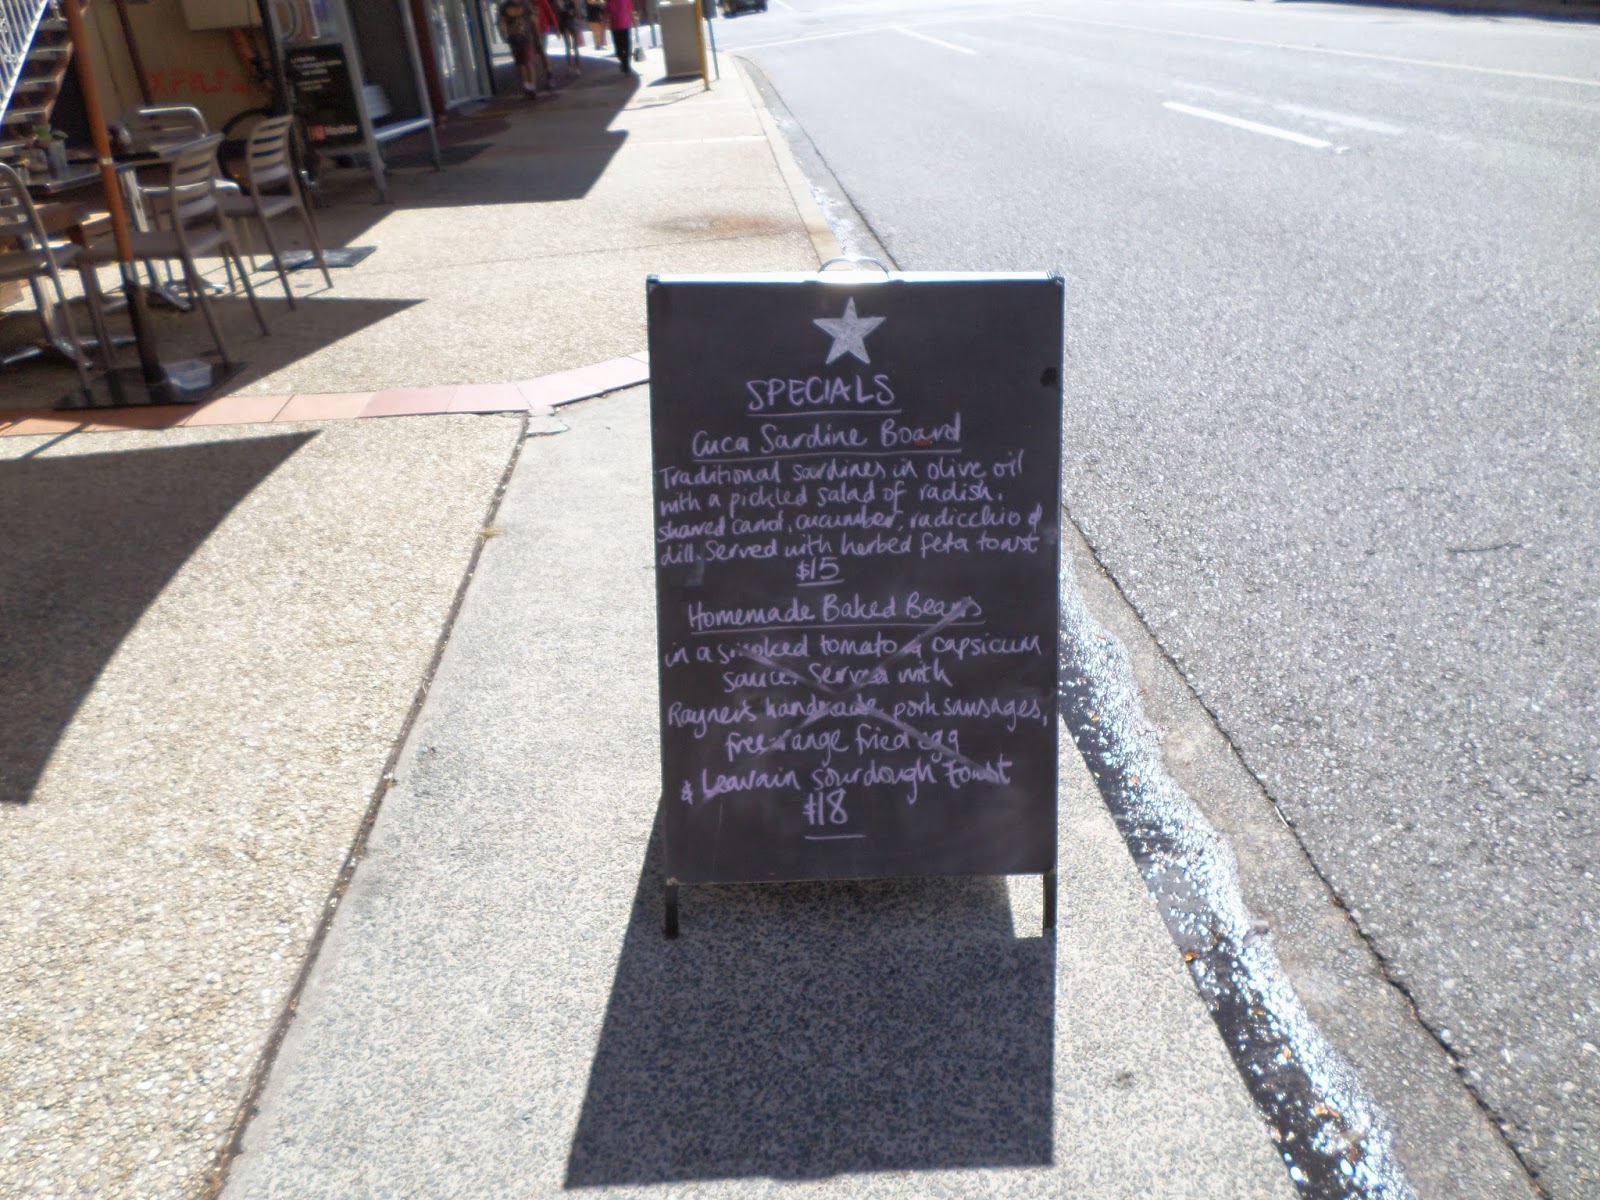 SPECIALS
Cuca Sardine Board
Traditional sardines in olive oil
with a pickled salad of radish,
shaved carrot, cucumber, radicchio &
dill. Served with herbed feta toast
$15
Homemade Baked Beans
in a smoked tomato & capsicum
sauce. Served with
Rayner's handmade pork sausages,
free-range fried egg
& Levain sourdough toast
$18